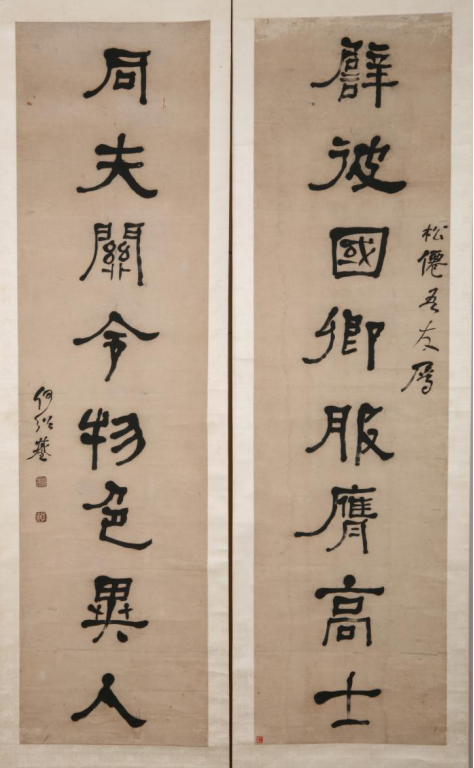 松僊吾友属
譬彼國卿服膺高士
同夫關令物色異人
何紹基